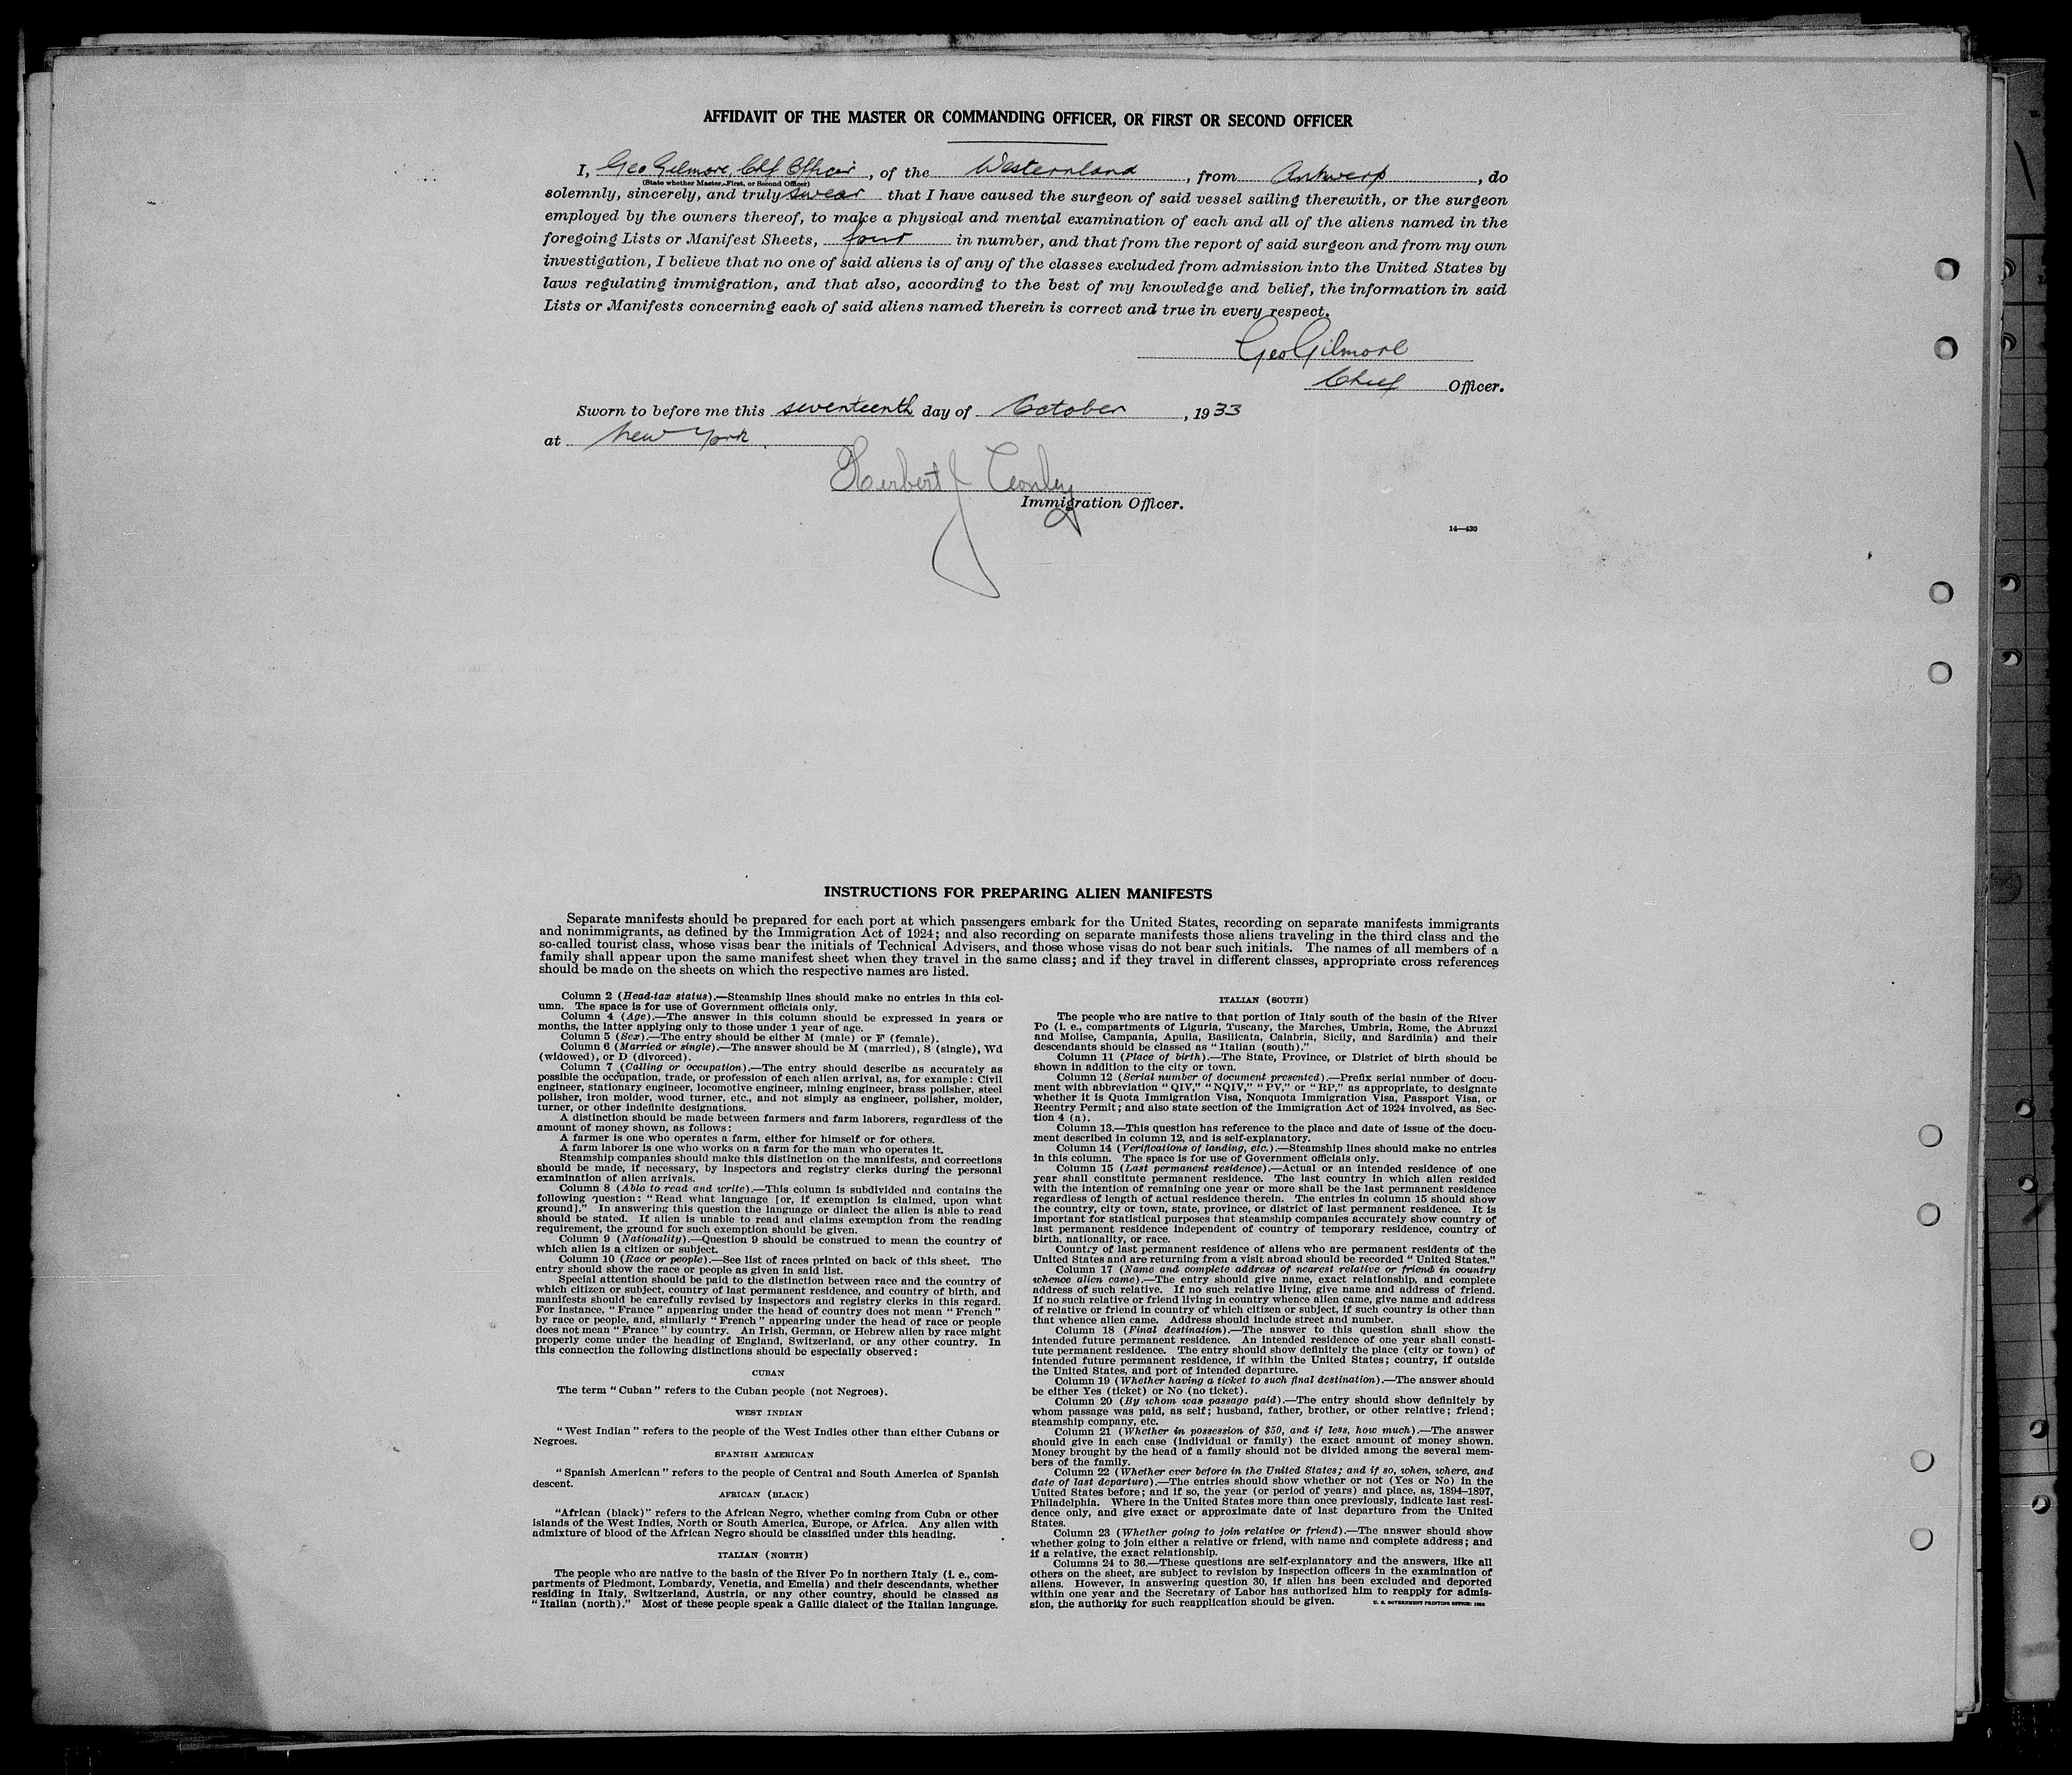 AFFIDAVIT OF THE MASTER OR COMMANDING OFFICER, OR FIRST OR SECOND OFFICER
I, Geo Gilmore, Chf Officer, of the Westernland, from Antwerp, do
(State whether Master, First, or Second Officer)
solemnly, sincerely, and truly swear that I have caused the surgeon of said vessel sailing therewith, or the surgeon
employed by the owners thereof, to make a physical and mental examination of each and all of the aliens named in the
foregoing Lists or Manifest Sheets, four in number, and that from the report of said surgeon and from my own
investigation, I believe that no one of said aliens is of any of the classes excluded from admission into the United States by
laws regulating immigration, and that also, according to the best of my knowledge and belief, the information in said
Lists or Manifests concerning each of said aliens named therein is correct and true in every respect.
Geo Gilmore
Chief Officer.
Sworn to before me this seventeenth day of October, 1933
at New York.
Herbert J
Immigration Officer.
14—430
INSTRUCTIONS FOR PREPARING ALIEN MANIFESTS
Separate manifests should be prepared for each port at which passengers embark for the United States, recording on separate manifests immigrants
and nonimmigrants, as defined by the Immigration Act of 1924; and also recording on separate manifests those aliens traveling in the third class and the
so-called tourist class, whose visas bear the initials of Technical Advisers, and those whose visas do not bear such initials. The names of all members of a
family shall appear upon the same manifest sheet when they travel in the same class; and if they travel in different classes, appropriate cross references
should be made on the sheets on which the respective names are listed.
Column 2 (Head-tax status).—Steamship lines should make no entries in this col-
umn. The space is for use of Government officials only.
Column 4 (Age).—The answer in this column should be expressed in years or
months, the latter applying only to those under 1 year of age.
Column 5 (Sex).—The entry should be either M (male) or F (female).
Column 6 (Married or single).—The answer should be M (married), S (single), Wd
(widowed), or D (divorced).
Column 7 (Calling or occupation).—The entry should describe as accurately as
possible the occupation, trade, or profession of each alien arrival, as, for example: Civil
engineer, stationary engineer, locomotive engineer, mining engineer, brass polisher, steel
polisher, iron molder, wood turner, etc., and not simply as engineer, polisher, molder,
turner, or other indefinite designations.
A distinction should be made between farmers and farm laborers, regardless of the
amount of money shown, as follows:
A farmer is one who operates a farm, either for himself or for others.
A farm laborer is one who works on a farm for the man who operates it.
Steamship companies should make this distinction on the manifests, and corrections
should be made, if necessary, by inspectors and registry clerks during the personal
examination of alien arrivals.
Column 8 (Able to read and write).—This column is subdivided and contains the
following question: "Read what language [or, if exemption is claimed, upon what
ground]." In answering this question the language or dialect the alien is able to read
should be stated. If alien is unable to read and claims exemption from the reading
requirement, the ground for such exemption should be given.
Column 9 (Nationality).—Question 9 should be construed to mean the country of
which alien is a citizen or subject.
Column 10 (Race or people).—See list of races printed on back of this sheet. The
entry should show the race or people as given in said list.
Special attention should be paid to the distinction between race and the country of
which citizen or subject, country of last permanent residence, and country of birth, and
manifests should be carefully revised by inspectors and registry clerks in this regard.
For instance, "France" appearing under the head of country does not mean "French"
by race or people, and, similarly "French" appearing under the head of race or people
does not mean "France" by country. An Irish, German, or Hebrew alien by race might
properly come under the heading of England, Switzerland, or any other country. In
this connection the following distinctions should be especially observed:
CUBAN
The term "Cuban" refers to the Cuban people (not Negroes).
WEST INDIAN
"West Indian" refers to the people of the West Indies other than either Cubans or
Negroes.
SPANISH AMERICAN
"Spanish American" refers to the people of Central and South America of Spanish
descent.
AFRICAN (BLACK)
"African (black)" refers to the African Negro, whether coming from Cuba or other
islands of the West Indies, North or South America, Europe, or Africa. Any alien with
admixture of blood of the African Negro should be classified under this heading.
ITALIAN (NORTH)
The people who are native to the basin of the River Po in northern Italy (i. e., com-
partments of Piedmont, Lombardy, Venetia, and Emelia) and their descendants, whether
residing in Italy, Switzerland, Austria, or any other country, should be classed as
"Italian (north)." Most of these people speak a Gallic dialect of the Italian language.
ITALIAN (SOUTH)
The people who are native to that portion of Italy south of the basin of the River
Po (i. e., compartments of Liguria, Tuscany, the Marches, Umbria, Rome, the Abruzzi
and Molise, Campania, Apulia, Basilicata, Calabria, Sicily, and Sardinia) and their
descendants should be classed as "Italian (south)."
Column 11 (Place of birth).—The State, Province, or District of birth should be
shown in addition to the city or town.
Column 12 (Serial number of document presented).—Prefix serial number of docu-
ment with abbreviation "QIV," "NQIV," "PV," or "RP," as appropriate, to designate
whether it is Quota Immigration Visa, Nonquota Immigration Visa, Passport Visa, or
Reentry Permit; and also state section of the Immigration Act of 1924 involved, as Sec-
tion 4 (a).
Column 13.—This question has reference to the place and date of issue of the docu-
ment described in column 12, and is self-explanatory.
Column 14 (Verifications of landing, etc.).—Steamship lines should make no entries
in this column. The space is for use of Government officials only.
Column 15 (Last permanent residence).—Actual or an intended residence of one
year shall constitute permanent residence. The last country in which alien resided
with the intention of remaining one year or more shall be the last permanent residence
regardless of length of actual residence therein. The entries in column 15 should show
the country, city or town, state, province, or district of last permanent residence. It is
important for statistical purposes that steamship companies accurately show country of
last permanent residence independent of country of temporary residence, country of
birth, nationality, or race.
Country of last permanent residence of aliens who are permanent residents of the
United States and are returning from a visit abroad should be recorded "United States."
Column 17 (Name and complete address of nearest relative or friend in country
whence alien came).—The entry should give name, exact relationship, and complete
address of such relative. If no such relative living, give name and address of friend.
If no such relative or friend living in country whence alien came, give name and address
of relative or friend in country of which citizen or subject, if such country is other than
that whence alien came. Address should include street and number.
Column 18 (Final destination).—The answer to this question shall show the
intended future permanent residence. An intended residence of one year shall consti-
tute permanent residence. The entry should show definitely the place (city or town) of
intended future permanent residence, if within the United States; country, if outside
the United States, and port of intended departure.
Column 19 (Whether having a ticket to such final destination).—The answer should
be either Yes (ticket) or No (no ticket).
Column 20 (By whom was passage paid).—The entry should show definitely by
whom passage was paid, as self; husband, father, brother, or other relative; friend;
steamship company, etc.
Column 21 (Whether in possession of $50, and if less, how much).—The answer
should give in each case (individual or family) the exact amount of money shown.
Money brought by the head of a family should not be divided among the several mem-
bers of the family.
Column 22 (Whether ever before in the United States; and if so, when, where, and
date of last departure).—The entries should show whether or not (Yes or No) in the
United States before; and if so, the year (or period of years) and place, as, 1894–1897,
Philadelphia. Where in the United States more than once previously, indicate last resi-
dence only, and give exact or approximate date of last departure from the United
States.
Column 23 (Whether going to join relative or friend).—The answer should show
whether going to join either a relative or friend, with name and complete address; and
if a relative, the exact relationship.
Columns 24 to 36.—These questions are self-explanatory and the answers, like all
others on the sheet, are subject to revision by inspection officers in the examination of
aliens. However, in answering question 30, if alien has been excluded and deported
within one year and the Secretary of Labor has authorized him to reapply for admis-
sion, the authority for such reapplication should be given.
U. S. GOVERNMENT PRINTING OFFICE: